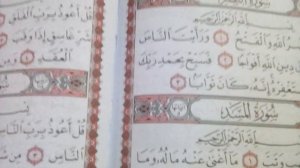 بِسْمِ اللَّهِ الرَّحْمَٰنِ الرَّحِيمِ
وَالْفَتْحُ ١ وَرَأَيْتَ النَّاسَ
دِينِ اللَّهِ أَفْوَاجًا ٢ فَسَبِّحْ بِحَمْدِ رَبِّكَ
إِنَّهُ كَانَ تَوَّابًا ٣
سُورَةُ الْمَسَدِ
بِسْمِ اللَّهِ الرَّحْمَٰنِ الرَّحِيمِ
وَتَبَّ ١ مَا أَغْنَىٰ عَنْهُ مَالُهُ وَمَا
قُلْ أَعُوذُ بِرَبِّ الْفَلَقِ
شَرِّ غَاسِقٍ إِذَا وَقَبَ
الْعُقَدِ ٤
قُلْ أَعُوذُ بِرَبِّ النَّاسِ
النَّاسِ ٣ مِنْ